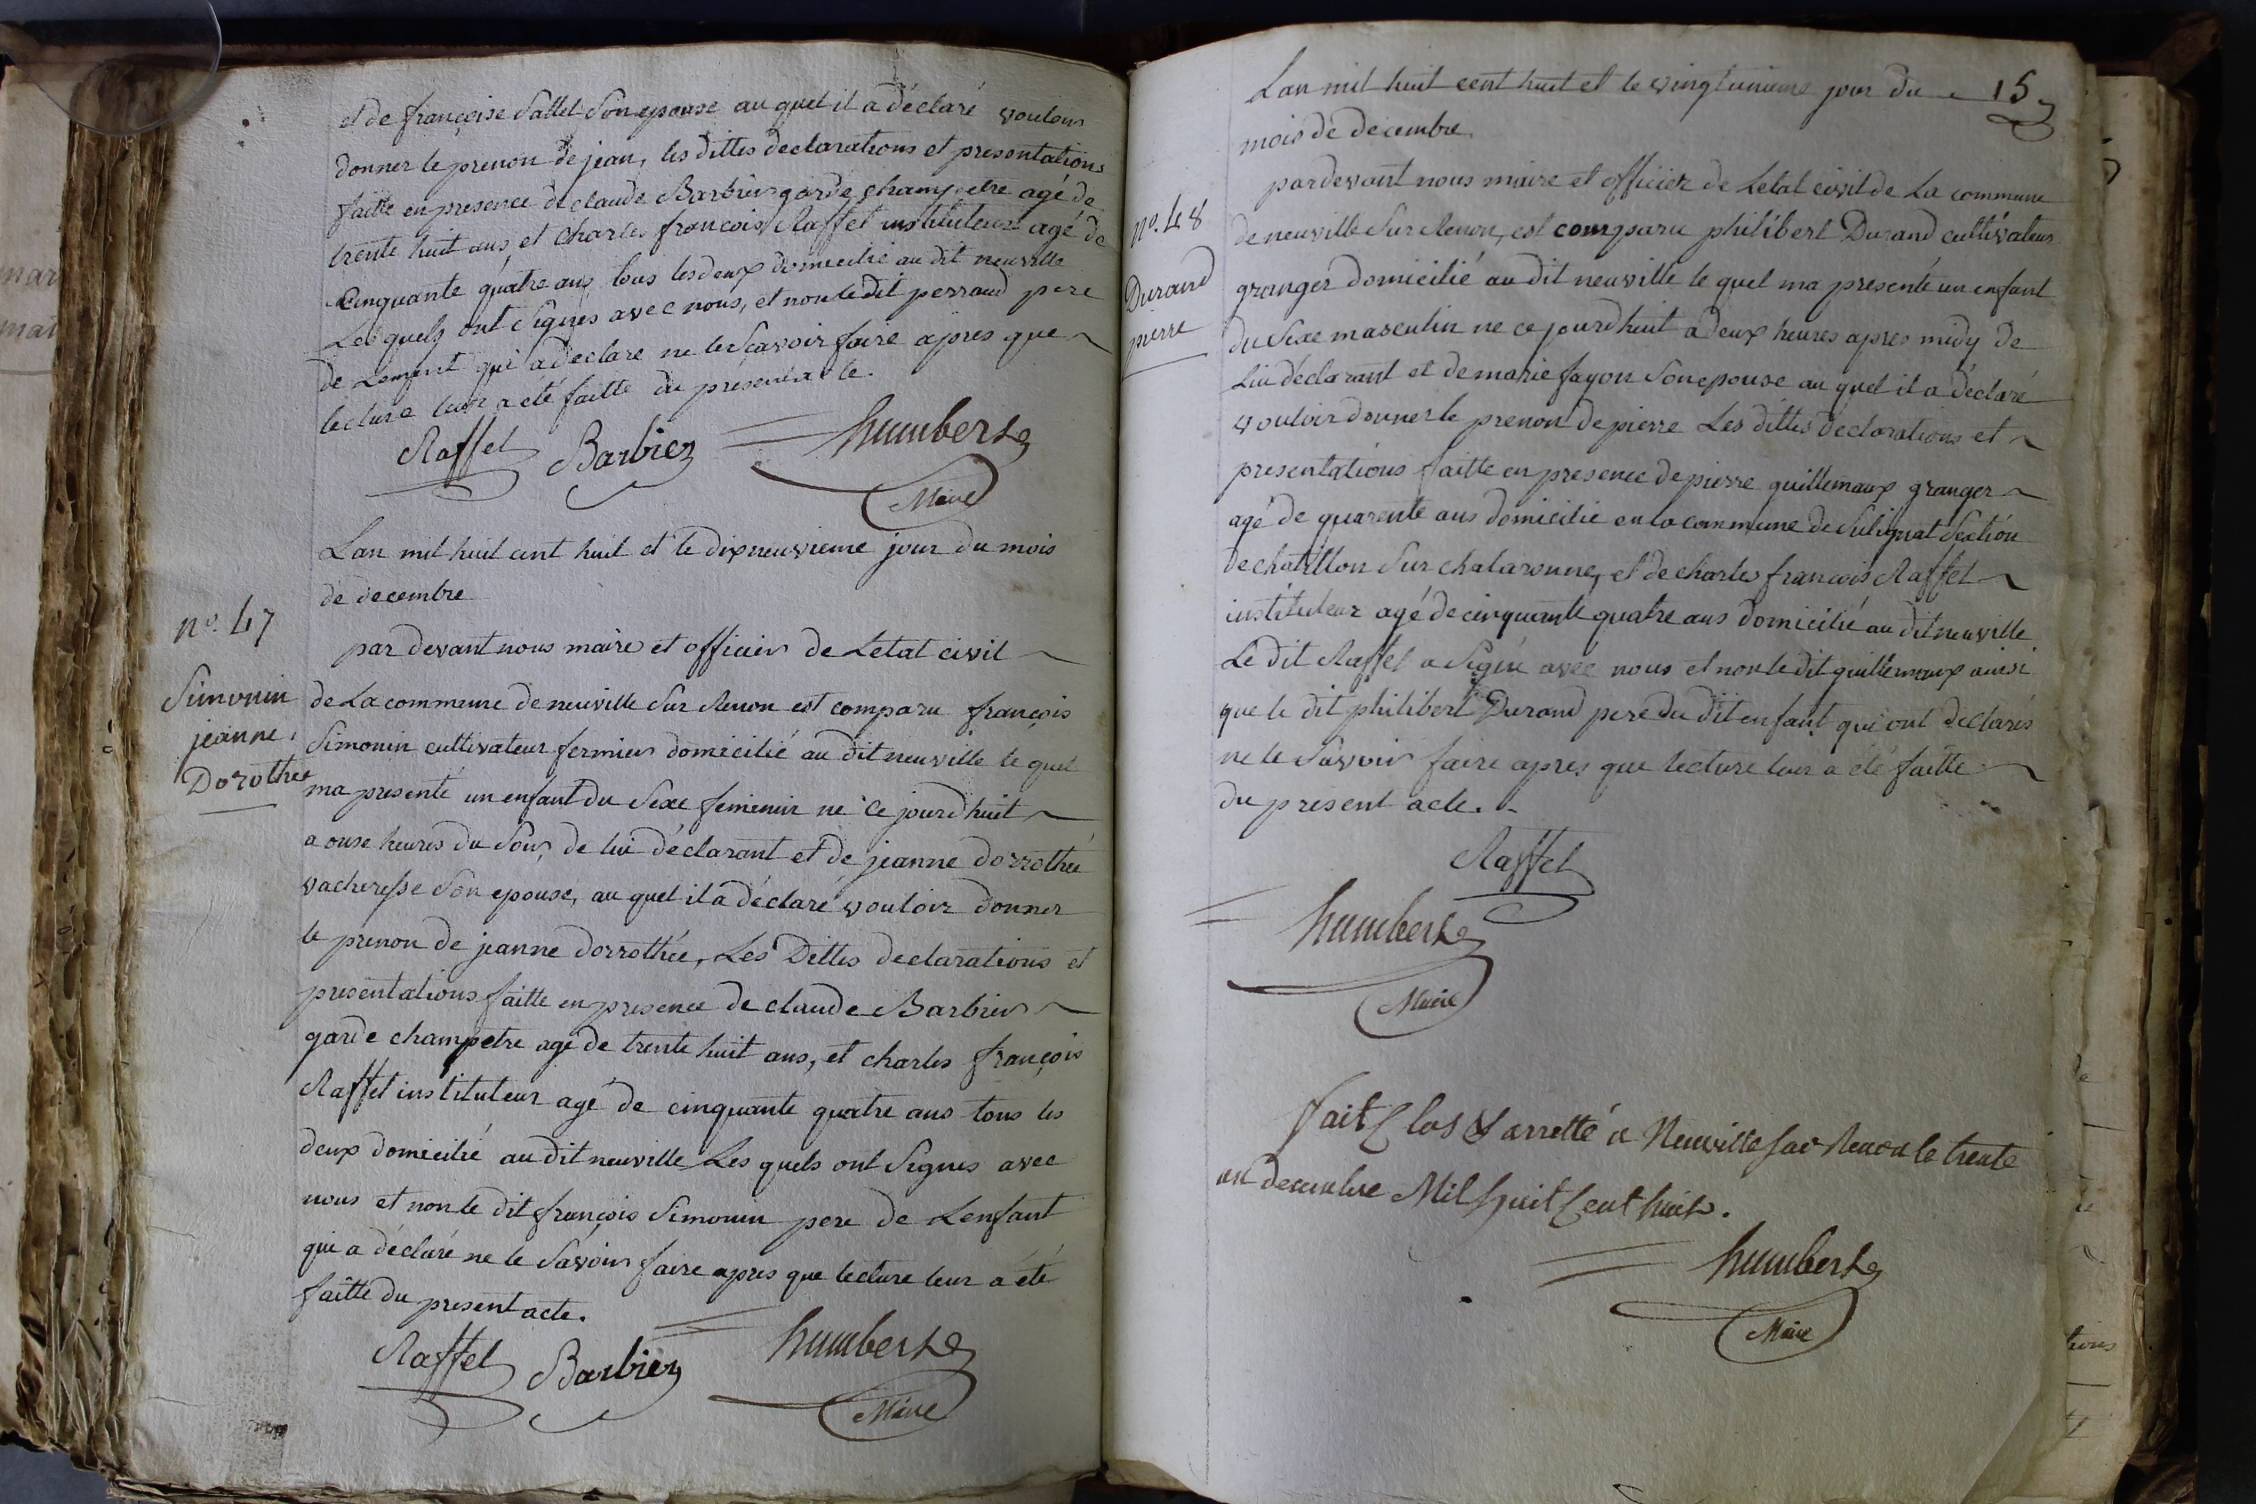 et de françoise Sallet Son epouse au quel il a déclaré vouloir
donner le prenon de jean, les dittes declarations et presentations
faitte en presence de claude Barbier garde champetre agé de
trente huit ans, et Charles françois Raffet instituteur agé de
Cinquante quatre ans tous les deux domicilié au dit neuville
Les quels ont Signés avec nous, et non le dit perraud pere
de Lenfent qui a declare ne le Scavoir faire apres que
lecture leur a été faitte du présent acte.
Raffet Barbier humbert
Maire
Lan mil huit cent huit et le dixneuvieme jour du mois
de decembre
n°. 47
Simonin
jeanne
Dorothée
par devant nous maire et officier de Letat civil
de La commune de neuville Sur Renon est comparu françois
Simonin cultivateur fermier domicilié au dit neuville le quel
ma presenté un enfant du Sexe feminin ne ce jourdhuit
a onse heures du Soir de lui déclarant et de jeanne dorrothée
vacheresse Son epouse, au quel il a déclaré vouloir donner
le prenon de jeanne dorrothée, Les Dittes declarations et
presentations faitte en presence de claude Barbier
garde champetre agé de trente huit ans, et charles françois
Raffet instituteur agé de cinquante quatre ans tous les
deux domicilié au dit neuville Les quels ont Signés avec
nous et non le dit françois Simonin pere de Lenfant
qui a déclaré ne le Savoir faire apres que lecture leur a été
faitte du present acte.
Raffet Barbier humbert
Maire
15
Lan mil huit cent huit et le vingtunieme jour du
mois de decembre
n°. 48
Durand
pierre
pardevant nous maire et officier de Letat civil de La commune
de neuville Sur Renon, est comparu philibert Durand cultivateur
granger domicilié au dit neuville le quel ma presenté un enfant
du Sexe masculin ne ce jourdhuit a deux heures apres midy de
Lui déclarant et de marie fayon Son epouse au quel il a déclaré
vouloir donner le prenon de pierre Les dittes declarations et
presentations faitte en presence de pierre guillemaux granger
agé de quarente ans domicilié en la commune de Sulignat Section
de chatillon Sur chalaronne, et de charles francois Raffet
instituteur agé de cinquante quatre ans domicilié au dit neuville
Le dit Raffet a Signé avec nous et non le dit guillemaux ainsi
que le dit philibert Durand pere du dit enfant qui ont déclarés
ne le Savoir faire apres que lecture leur a été faitte
du present acte.
Raffet
humbert
Maire
fait Clos & arretté a Neuville sur Renon le trente
un decembre Mil huit Cent huit.
humbert
Maire